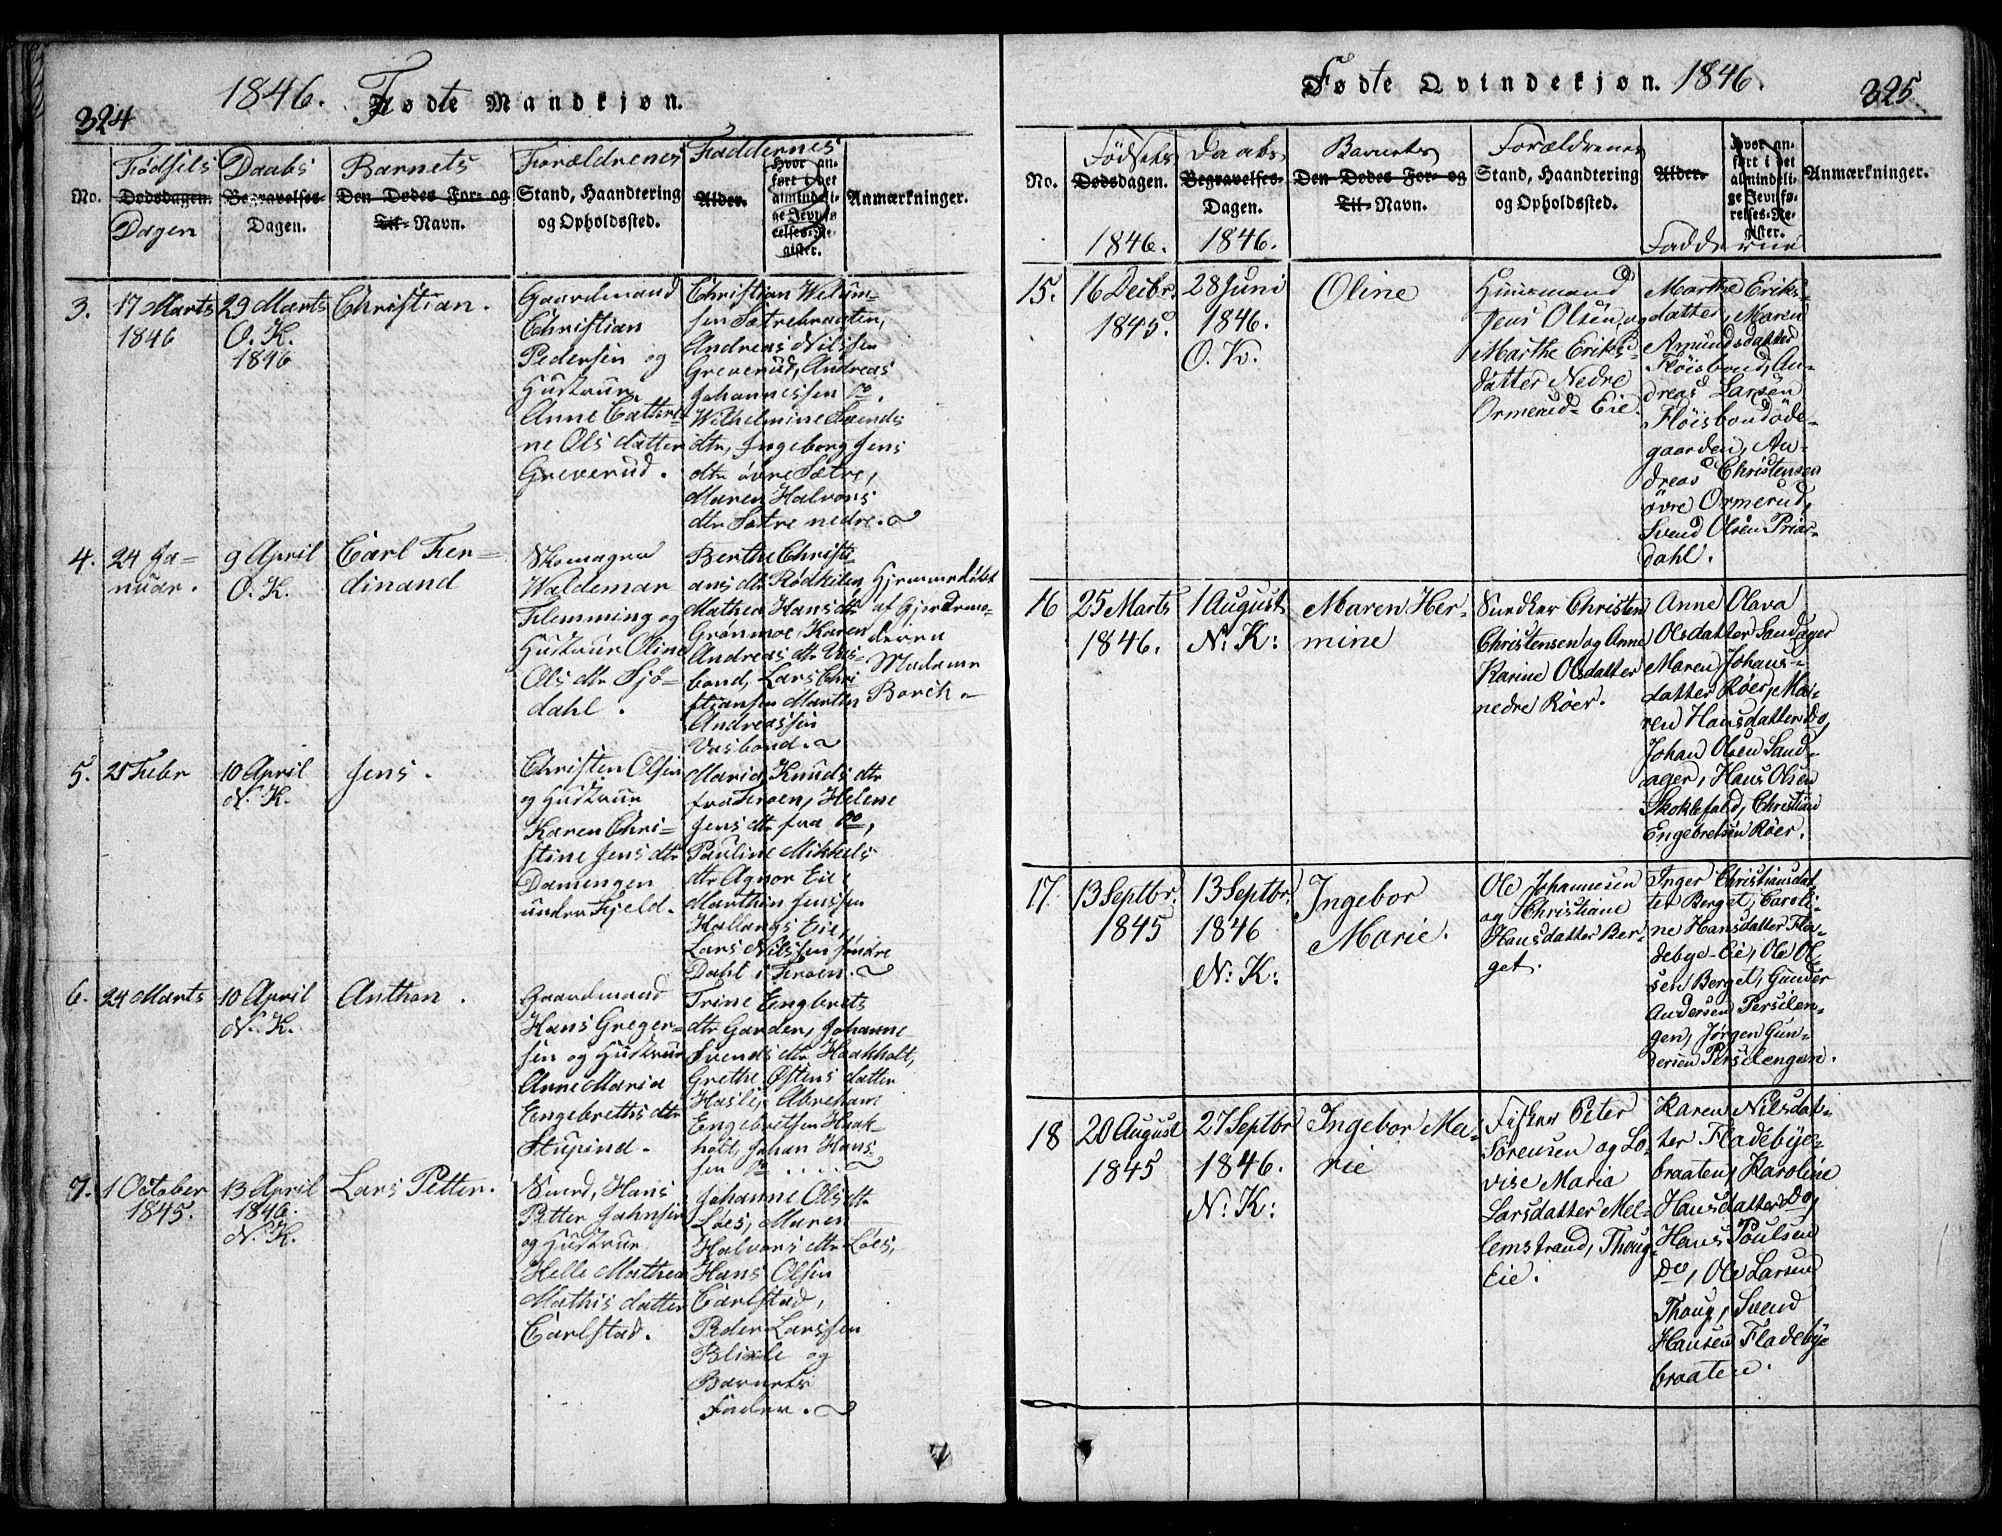 324
1846. Fødte Mandkjøn.
No.
Fødsels
Dødsdagen.
Dagen
Daabs
Begravelses-
Dagen.
Barnets
Den Dødes For- og
Til- Navn.
Forældrenes
Stand, Haandtering
og Opholdssted.
Faddernes
Alder.
Hvor an-
ført i det
almindeli-
ge Jevn-
førelses-Re-
gister.
Anmærkninger.
3.
17 Marts
1846
29 Marts
O. K.
1846
Christian.
Gaardmand
Christian
Pedersen og
Hustrue
Anne Cathri-
ne Olsdatter
Greverud.
Christian Welum-
sen Sætrebraaten,
Andreas Nilssen
Greverud, Andreas
Johannessen Do.
Wilhelmine Svends
dtr, Ingeborg Jens
dtr øvre Sætre,
Maren Halvors
dtr Sætre nedre.
4.
24 Ja-
nuar.
9 April
O. K.
Carl Fer-
dinand
Skomager
Waldemar
Flemming og
Hustrue Oline
Ols dtr Sjø-
dahl.
Berthe Christi-
ans dtr Rødkilen,
Mathea Hans dtr
Grønmoe, Karen
Andreas dtr Vas-
bond, Lars Chri-
stiansen Martin
Andreassen
Vasbond.
Hjemmedøbt
af Gjordemo-
deren
Madame
Borch.
5.
25 Febr
10 April
N. K.
Jens.
Christen Olsen
og Hustrue
Karen Chri-
stine Jens dtr
Damengen
under Fjeld.
Maria Knuds dtr
fra Froen, Helene
Jens dtr fra Do,
Pauline Mikkels
dtr Agnor Eie,
Marthin Jenssen
Hallangs Eie,
Lars Nilssen søndre
Dahl i Froen.
6.
24 Marts
10 April
N. K.
Anthon.
Gaardmand
Hans Greger-
sen og Hustrue
Anne Maria
Engebreths dtr
Stupind.
Trine Engbrets
dtr Garder, Johanne
Svends dtr Haakholt,
Grethe Østens datter
Hasle, Abraham
Engebretsen Haak-
holt, Johan Hans-
sen Do
7.
1 October
1845.
13 April
1846.
N. K.
Lars Petter.
Smed, Hans
Petter Johnsen
og Hustrue
Helle Mathea
Mathis datter
Carlstad.
Johanne Ols dtr
Løes, Maren
Halvors dtr Løes,
Hans Olsen
Carlstad,
Peder Larssen
Blixle og
Barnets
Fader.
Fødte Qvindekjøn. 1846.
325
No.
Fødsels
Dødsdagen.
1846.
Daabs
Begravelses-
Dagen.
1846.
Barnets
Den Dødes For- og
Til- Navn.
Forældrenes
Stand, Haandtering
og Opholdssted.
Alder.
Hvor an-
ført i det
almindeli-
ge Jevnfø-
relses-Re-
gister.
Fadderne
Anmærkninger.
15.
16 Decbr.
1845.
28 Juni
1846.
O. K.
Oline
Huusmand
Jens Olsen og
Marthe Eriks-
datter Nedre
Ormerud-Eie.
Marthe Eriks-
datter, Maren
Amundsdatter
Fløisbond, An-
dreas Larsen
Fløisbondøde-
gaarden, An-
dreas Christensen
øvre Ormerud,
Svend Olsen Prær-
dahl.
16
25 Marts
1846.
1 August
N: K:
Maren Her-
mine
Snedker Christen
Christensen og Anne
Karine Olsdatter
nedre Røer.
Anne Olava
Olsdatter Sandager
Maren Johans-
datter Røer, Ma-
ren Hansdatter Do,
Johan Olsen Sand-
ager, Hans Olsen
Skoklefald, Christian
Engebretsen Røer.
17
13 Septbr.
1845
13 Septbr.
1846
N: K:
Ingebor
Marie.
Ole Johannesen
og Christiane
Hansdatter Ber-
get.
Inger Christiansdat-
ter Berget, Caroli-
ne Hansdatter Fla-
debye-Eie, Ole Ol-
sen Berget, Gunder
Andersen Persilen-
gen, Jørgen Gun-
dersen Persilengen.
18
20 August
1845
27 Septbr
1846.
N: K:
Ingebor Ma-
rie
Fisker Peter
Sørensen og Lo-
vise Maria
Larsdatter Mel-
lemstrand, Thoug-
Eie.
Karen Nilsdat-
ter Fladebye-
braaten, Karoline
Hansdatter Do,
Hans Poulsen
Do, Ole Larsen
Thoug, Svend
Hansen Fladebye-
braaten.